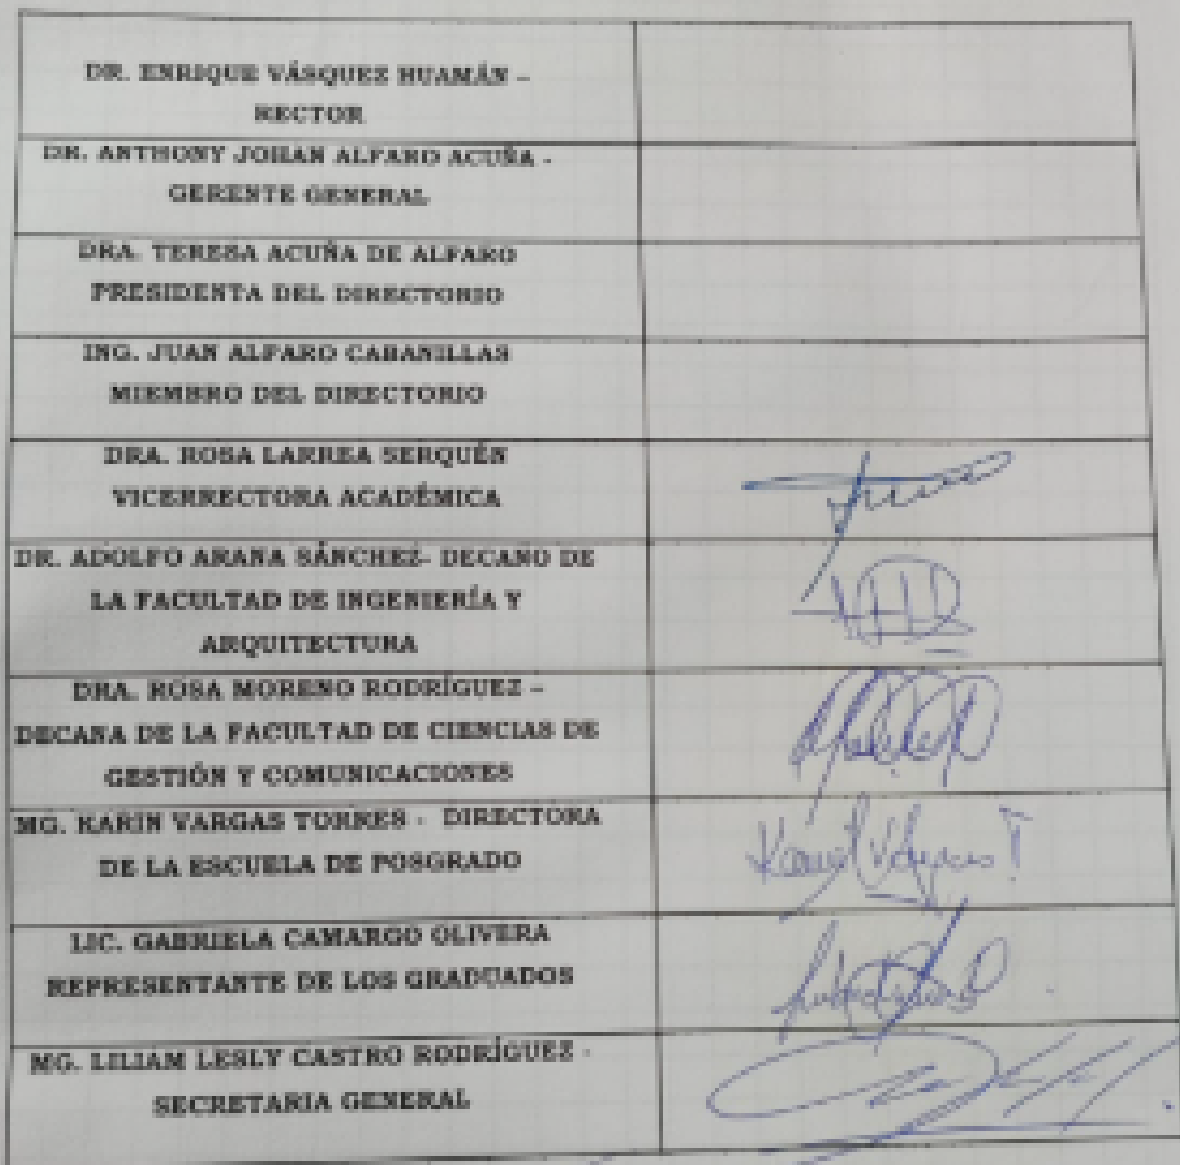 DR. ENRIQUE VÁSQUEZ HUAMÁN –
RECTOR
DR. ANTHONY JOHAN ALFARO ACUÑA -
GERENTE GENERAL
DRA. TERESA ACUÑA DE ALFARO
PRESIDENTA DEL DIRECTORIO
ING. JUAN ALFARO CABANILLAS
MIEMBRO DEL DIRECTORIO
DRA. ROSA LARREA SERQUÉN
VICERRECTORA ACADÉMICA
DR. ADOLFO ARANA SÁNCHEZ- DECANO DE
LA FACULTAD DE INGENIERÍA Y
ARQUITECTURA
DRA. ROSA MORENO RODRÍGUEZ –
DECANA DE LA FACULTAD DE CIENCIAS DE
GESTIÓN Y COMUNICACIONES
MG. KARIN VARGAS TORRES - DIRECTORA
DE LA ESCUELA DE POSGRADO
LIC. GABRIELA CAMARGO OLIVERA
REPRESENTANTE DE LOS GRADUADOS
MG. LILIAM LESLY CASTRO RODRÍGUEZ -
SECRETARIA GENERAL